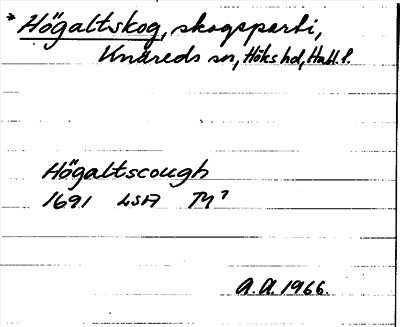 * Högaltskog, skogsparti,
Knäreds sn, Höks hd, Hall. l.
Högaltscough
1691 LSA TY 7
A.A. 1966.